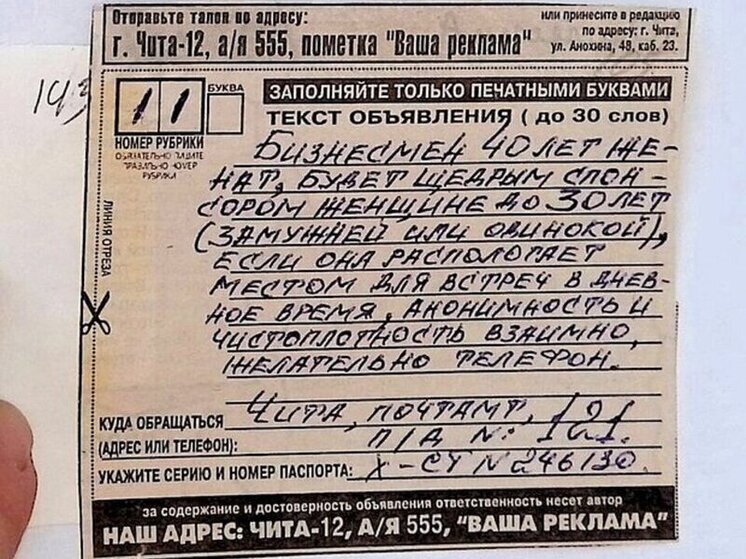 Отправьте талон по адресу:
г. Чита-12, а/я 555, пометка "Ваша реклама"
или принесите в редакцию
по адресу: г. Чита,
ул. Анохина, 48, каб. 23.
143
11
БУКВА
НОМЕР РУБРИКИ
ОБЯЗАТЕЛЬНО ПИШИТЕ
ПРАВИЛЬНО НОМЕР
РУБРИКИ
ЛИНИЯ ОТРЕЗА
ЗАПОЛНЯЙТЕ ТОЛЬКО ПЕЧАТНЫМИ БУКВАМИ
ТЕКСТ ОБЪЯВЛЕНИЯ ( до 30 слов)
БИЗНЕСМЕН 40 ЛЕТ ЖЕ-
НАТ, БУДЕТ ЩЕДРЫМ СПОН-
СОРОМ ЖЕНЩИНЕ ДО 30 ЛЕТ
(ЗАМУЖНЕЙ ИЛИ ОДИНОКОЙ),
ЕСЛИ ОНА РАСПОЛОГАЕТ
МЕСТОМ ДЛЯ ВСТРЕЧ В ДНЕВ-
НОЕ ВРЕМЯ, АНОНИМНОСТЬ И
ЧИСТОПЛОТНОСТЬ ВЗАИМНО,
ЖЕЛАТЕЛЬНО ТЕЛЕФОН.
КУДА ОБРАЩАТЬСЯ ЧИТА, ПОЧТАМТ, 121
(АДРЕС ИЛИ ТЕЛЕФОН): П/Д N: 121.
УКАЖИТЕ СЕРИЮ И НОМЕР ПАСПОРТА: X-СТ N 246130.
за содержание и достоверность объявления ответственность несет автор
НАШ АДРЕС: ЧИТА-12, А/Я 555, "ВАША РЕКЛАМА"